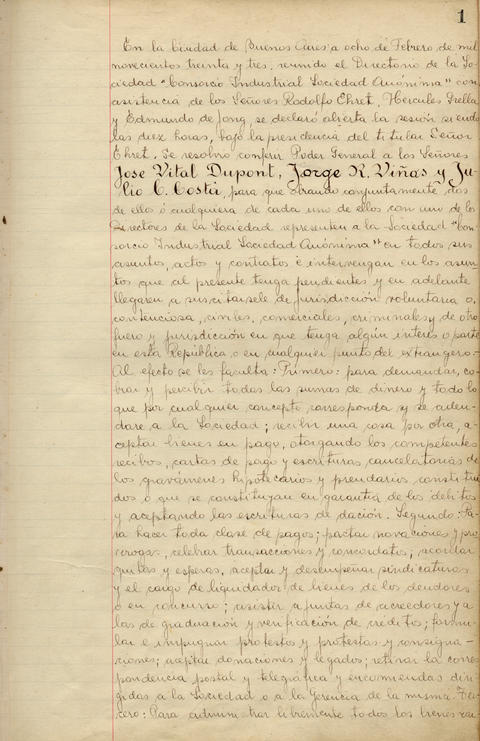 1
En la Ciudad de Buenos Aires a ocho de Febrero de mil
novecientos treinta y tres, reunido el Directorio de la So-
ciedad "Consorcio Industrial Sociedad Anónima" con
asistencia de los Señores Rodolfo Ehret, Hercules Grella
y Edmundo de Jong, se declaró abierta la sesión siendo
las diez horas, bajo la presidencia del titular Señor
Ehret. Se resolvió conferir Poder General a los Señores
Jose Vital Dupont, Jorge R. Viñas y Ju-
lio C. Costa, para que obrando conjuntamente dos
de ellos ó cualquiera de cada uno de ellos con uno de los
Directores de la Sociedad representen a la Sociedad "Con-
sorcio Industrial Sociedad Anónima" en todos sus
asuntos, actos y contratos é intervengan en los asun-
tos que al presente tenga pendientes y en adelante
llegaren a suscitarsele de jurisdicción voluntaria o
contenciosa, civiles, comerciales, criminales y de otro
fuero y jurisdicción en que tenga algún interes o parte
en esta República o en cualquier punto del extrangero.-
Al efecto se les faculta: Primero: para demandar, co-
brar y percibir todas las sumas de dinero y todo lo
que por cualquier concepto corresponda y se adeu-
dare a la Sociedad; recibir una cosa por otra, a-
ceptar bienes en pago, otorgando los competentes
recibos, cartas de pago y escrituras cancelatorias de
los gravámenes hipotecarios y prendarios constitui-
dos o que se constituyan en garantía de los débitos
y aceptando las escrituras de dación. Segundo: Pa-
ra hacer toda clase de pagos; pactar novaciones y pro-
rrogas, celebrar transacciones y concordatos; acordar
quitas y esperas, aceptar y desempeñar sindicaturas
y el cargo de liquidador de bienes de los deudores
o en concurso; asistir a juntas de acreedores y a
las de graduación y verificación de creditos; formu-
lar e impugnar protestos y protestas y consigna-
ciones; aceptar donaciones y legados; retirar la corres
pondencia postal y telegráfica y encomiendas diri-
gidas a la Sociedad o a la Gerencia de la misma. Ter-
cero: Para administrar libremente todos los bienes